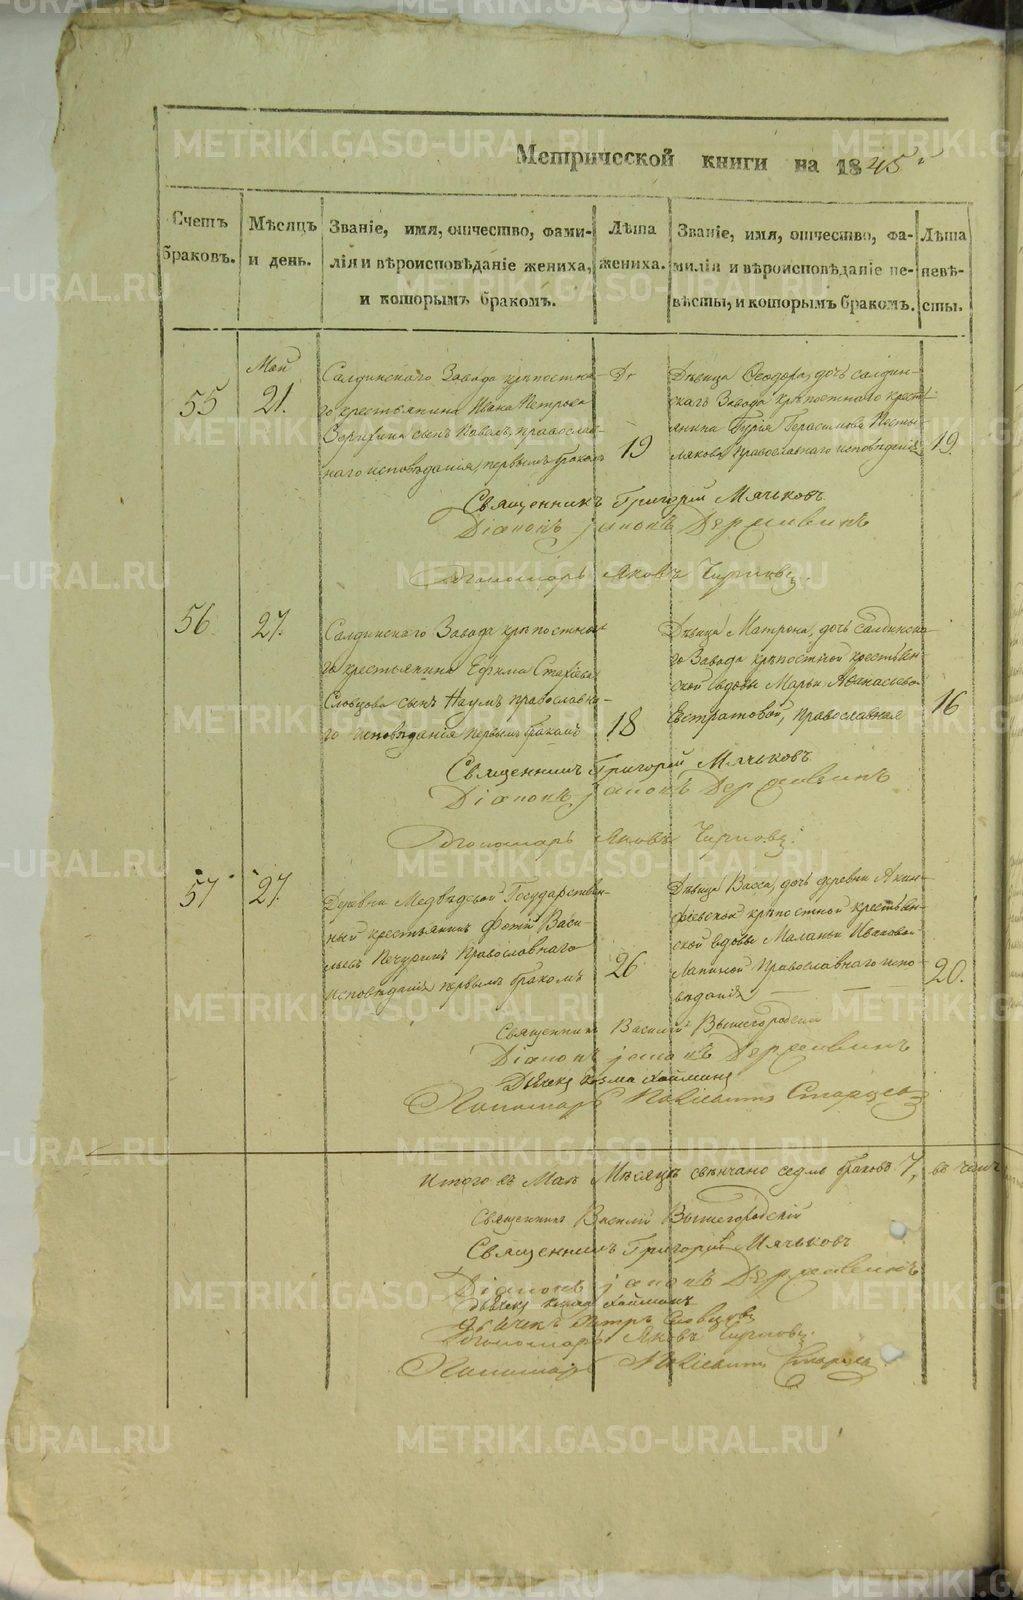 Метрической книги на 1845й
Счетъ браковъ.
Мѣсяцъ и день.
Званіе, имя, отчество, фамилія и вѣроисповѣданіе жениха, и которымъ бракомъ.
Лѣта жениха.
Званіе, имя, отчество, фамилія и вѣроисповѣданіе невѣсты, и которымъ бракомъ.
Лѣта невѣсты.
Май
55
21.
Салдинскаго Завода крѣпостна-
го крестьянина Ивана Петрова
сынъ Павелъ, православ-
наго исповѣданія, первымъ бракомъ
19
Дѣвица Ѳеодора, дочь салдин-
скаго Завода крѣпостнаго крест-
янина Гурія Герасимова
Православнаго исповѣданія
19.
Священникъ Григорій Мячьковъ
Діаконъ Державинъ
Пономарь Яковъ
56
27.
Салдинскаго Завода крѣпостна-
го крестьянина Ефима
Словцова сынъ Наумъ православна-
го исповѣданія первымъ бракомъ
18
Дѣвица Матрона, дочь Салдинска-
го Завода крѣпостной крестьян-
ской вдовы Марьи Афанасьевой
Евстратовой, православная
16
Священникъ Григорій Мячьковъ
Діаконъ Державинъ
Пономарь Яковъ
57
27.
Деревни Медвѣдевой Государствен-
ный крестьянинъ Фотій Васи-
льевъ Печуринъ Православнаго
исповѣданія первымъ бракомъ
26
Дѣвица Васса, дочь деревни Акин-
фіевской крѣпостной крестьян-
ской вдовы Маланьи Ивановой
Лапиной Православнаго испо-
вѣданія
20.
Священникъ Василій Вышегородскій
Діаконъ Державинъ
Дьячекъ Козма
Пономарь Старцевъ
Итого въ Маѣ Мѣсяцѣ свѣнчано седмь браковъ 7, въ чемъ
Священникъ Василій Вышегородскій
Священникъ Григорій Мячьковъ
Діаконъ Державинъ
Дьячекъ Козма
Дьячекъ Петръ Словцовъ
Пономарь Яковъ
Пономарь Старцевъ
METRIKI.GASO-URAL.RU